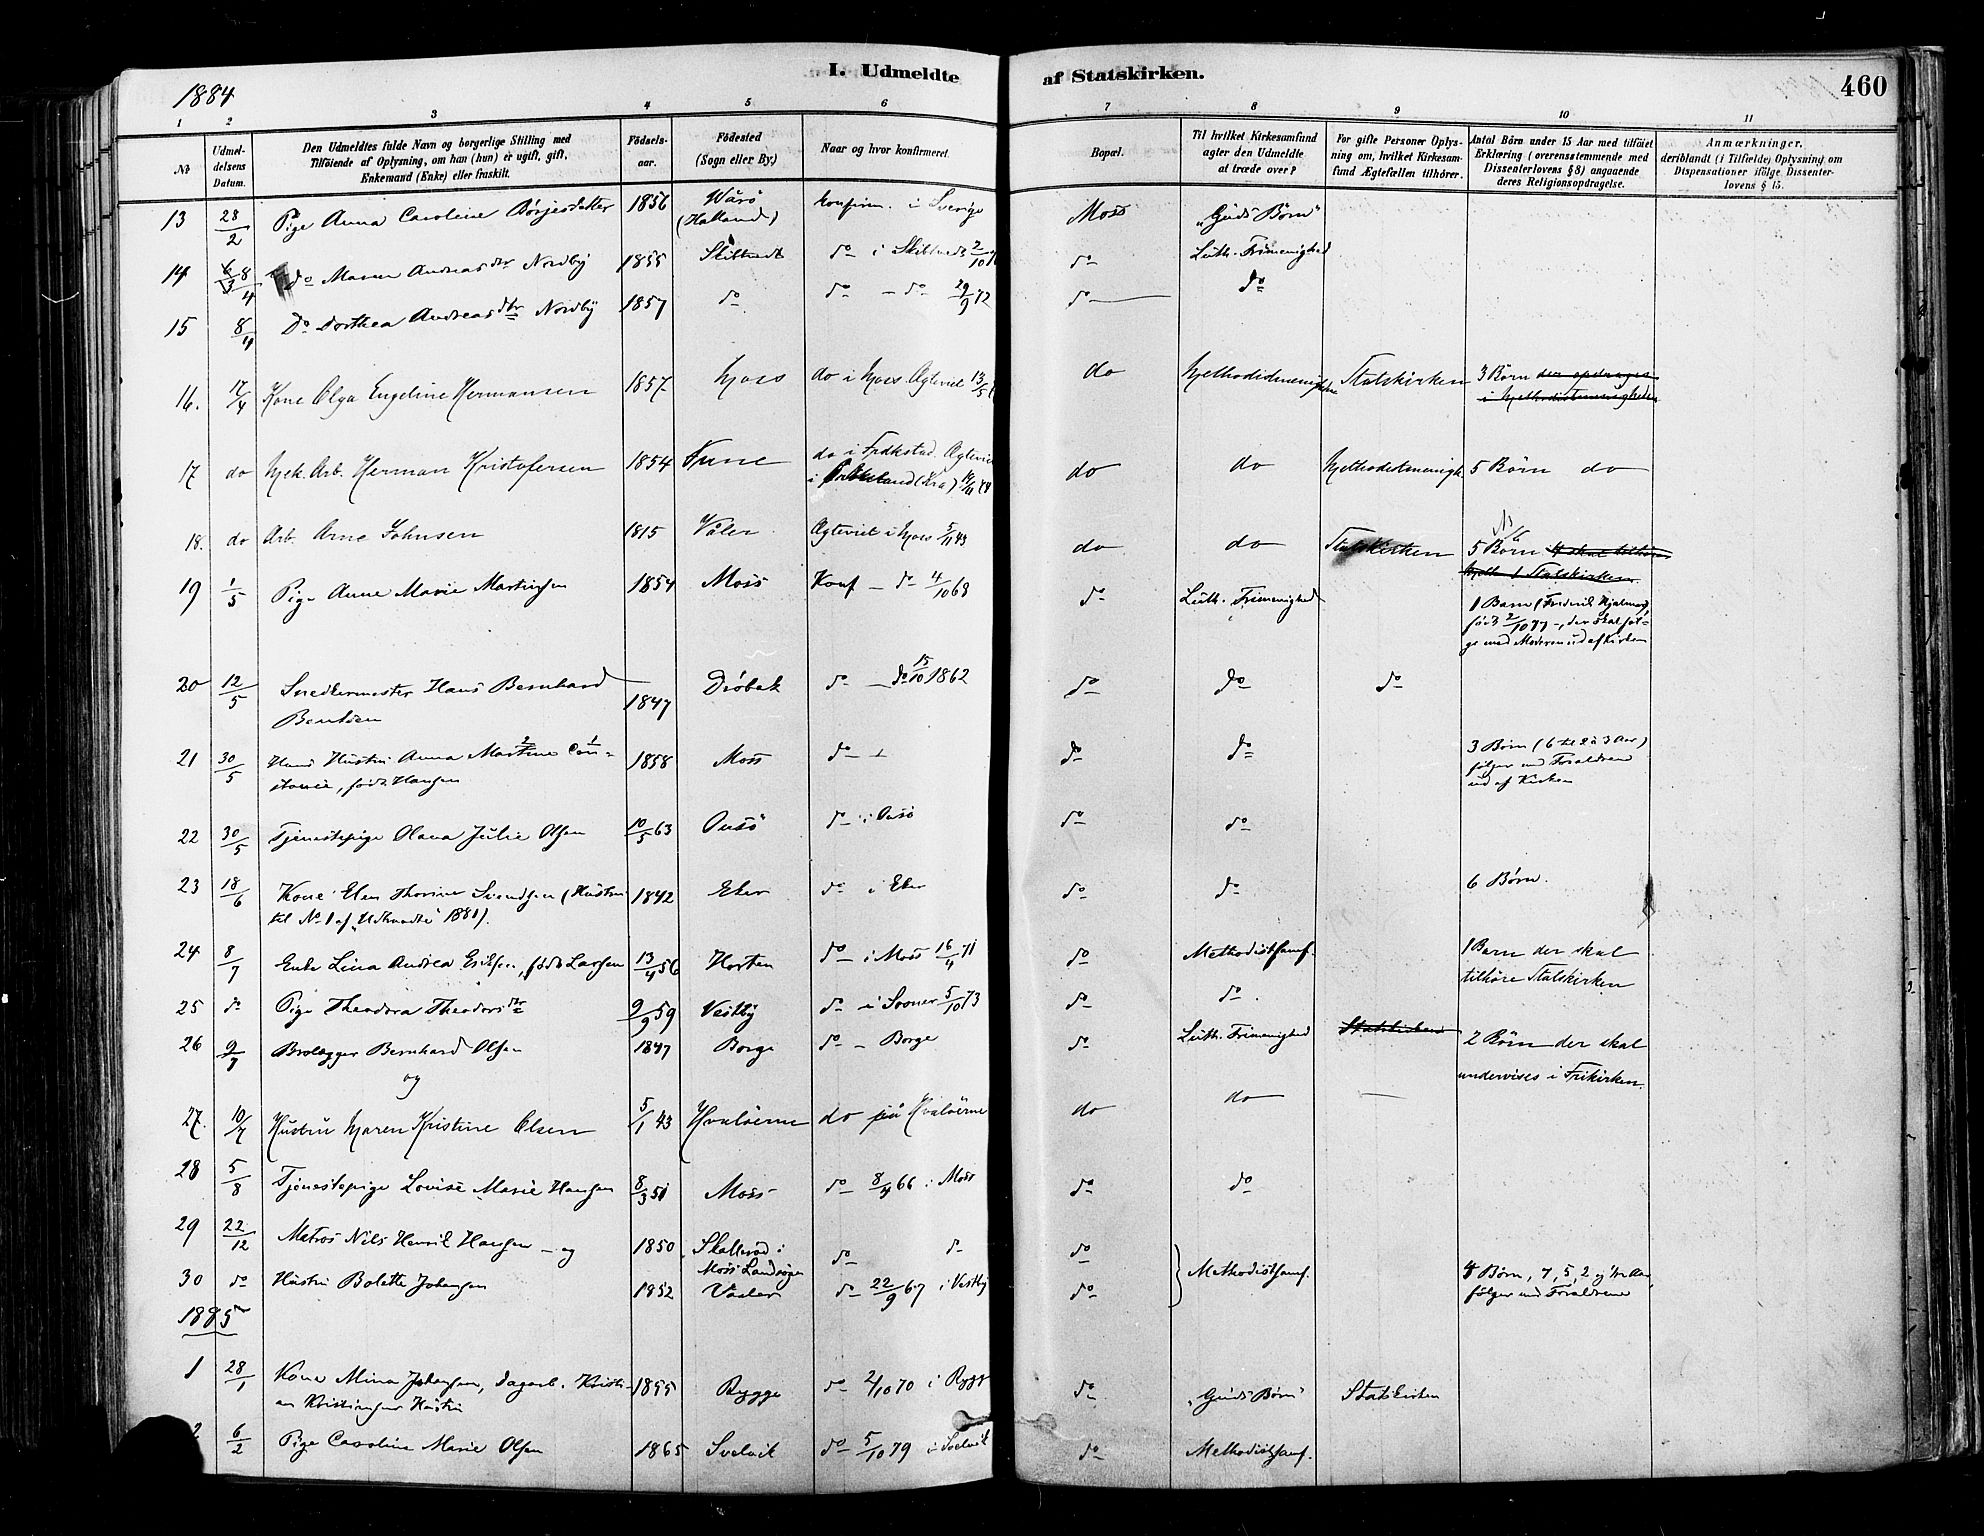 I. Udmeldte af Statskirken.
460
1884
1 2 3 4 5 6 7 8 9 10 11
No
Udmeldelsens Datum.
Den Udmeldtes fulde Navn og borgerlige Stilling med
Tilføiende af Oplysning, om han (hun) er ugift, gift,
Enkemand (Enke) eller fraskilt.
Fødselsaar.
Fødested
(Sogn eller By.)
Naar og hvor konfirmeret.
Bopæl.
Til hvilket Kirkesamfund
agter den Udmeldte
at træde over?
For gifte Personer Oplysning om, hvilket Kirkesamfund Ægtefællen tilhører.
Antal Børn under 15 Aar med tilføiet
Erklæring (overensstemmende med
Dissenterlovens § 8) angaaende
deres Religionsopdragelse.
Anmærkninger,
deriblandt (i Tilfælde) Oplysning om
Dispensationer ifølge Dissenterlovens § 15.
13 28/2 Pige Anna Caroline Børjesdatter 1856 Wärö (Halland) konfirm. i Sverige Moss "Guds Børn"
14 8/4 do Maren Andreasdtr Nordby 1855 Skibtvedt do i Skibtvedt 2/10 do Luth. Frimenighed
15 8/4 Do Dorthea Andreasdtr Nordby 1857 do do - do 29/9 72 do do
16. 17/4 Kone Olga Engeline Hermansen 1857 Moss do i Moss Agteviet 13/5 do Methodistmenigheden Statskirken 3 Børn der opdrages
i Methodistmenigheden
17 do Mek. Arb. Herman Kristofersen 1854 Tune do i Fredkstad. Agteviet
i (Kra) do do Methodistmenigh. 5 Børn do
18. do Arb. Arne Johnsen 1815 Våler Agteviet i Moss 5/11 43 do do Statskirken 5 Børn 4 skal tilhøre
Meth 1 Statskirken
19 1/5 Pige Anne Marie Martinsen 1854 Moss Konf - do 4/10 68 do Luth. Frimenighed 1 Barn (Frederik Hjalmar),
født 2/10 77 -, der skal følge med Moderen ud af Kirken
20 12/5 Snedkermester Hans Bernhard
Bentsen 1847 Drøbak do - do 15/10 1862 do do do
21 30/5 Hans Hustru Anna Martine Constancie, født Hansen 1858 Moss do - do do 3 Børn (6 til 2 à 3 Aar)
følger med Forældrene
ud af Kirken
22 30/5 Tjenestepige Olava Julie Olsen 10/5 63 Onsö do i Onsö do do
23 18/6 Kone Elen Thorine Svendsen (Hustru
til No 1 af "Udtraadte" 1881). 1842 Eker do i Eker do do 6 Børn.
24 8/7 Enke Lina Andrea Eriksen, født Larsen 13/4 56 Horten do i Moss 16/4 71 do Methodistsamf. 1 Barn der skal
tilhøre Statskirken
25 do Pige Theodora Theodorsdtr 9/9 59 Vestby do i Sooner 5/10 73 do do.
26 9/7 Brolægger Bernhard Olsen 1847 Borge do - Borge do Luth. Frimenighed Statskirken 2 Børn der skal
og undervises i Frikirken.
27. 10/7 Hustru Maren Kristine Olsen 5/1 43 Hvaløerne do på Hvaløerne do do
28 5/8 Tjenestepige Lovise Marie Hansen 8/3 51 Moss do 8/4 66 i Moss do do
29 22/12 Matros Nils Henrik Hansen - og 1850 Skallerød i
Moss Landsogn do do do
30 do Hustru Bolette Johansen 1852 Vaaler do 22/9 67 i Vestby do Methodistsamf. 4 Børn, 7, 5, 2 og 1/2 Aar,
følger med Forældrene
1885
1 28/1 Kone Mina Johansen, Dagarb. Kristian Kristiansens Hustru 1855 Rygge do 2/10 70 i Rygge do "Guds Børn" Statskirken
2 6/2 Pige Caroline Marie Olsen 1865 Svelvik do 5/10 79 i Svelvik do Methodistsamf.